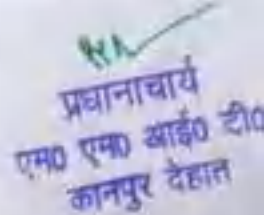 प्रधानाचार्य
एम0 एम0 आई0 टी0
कानपुर देहात